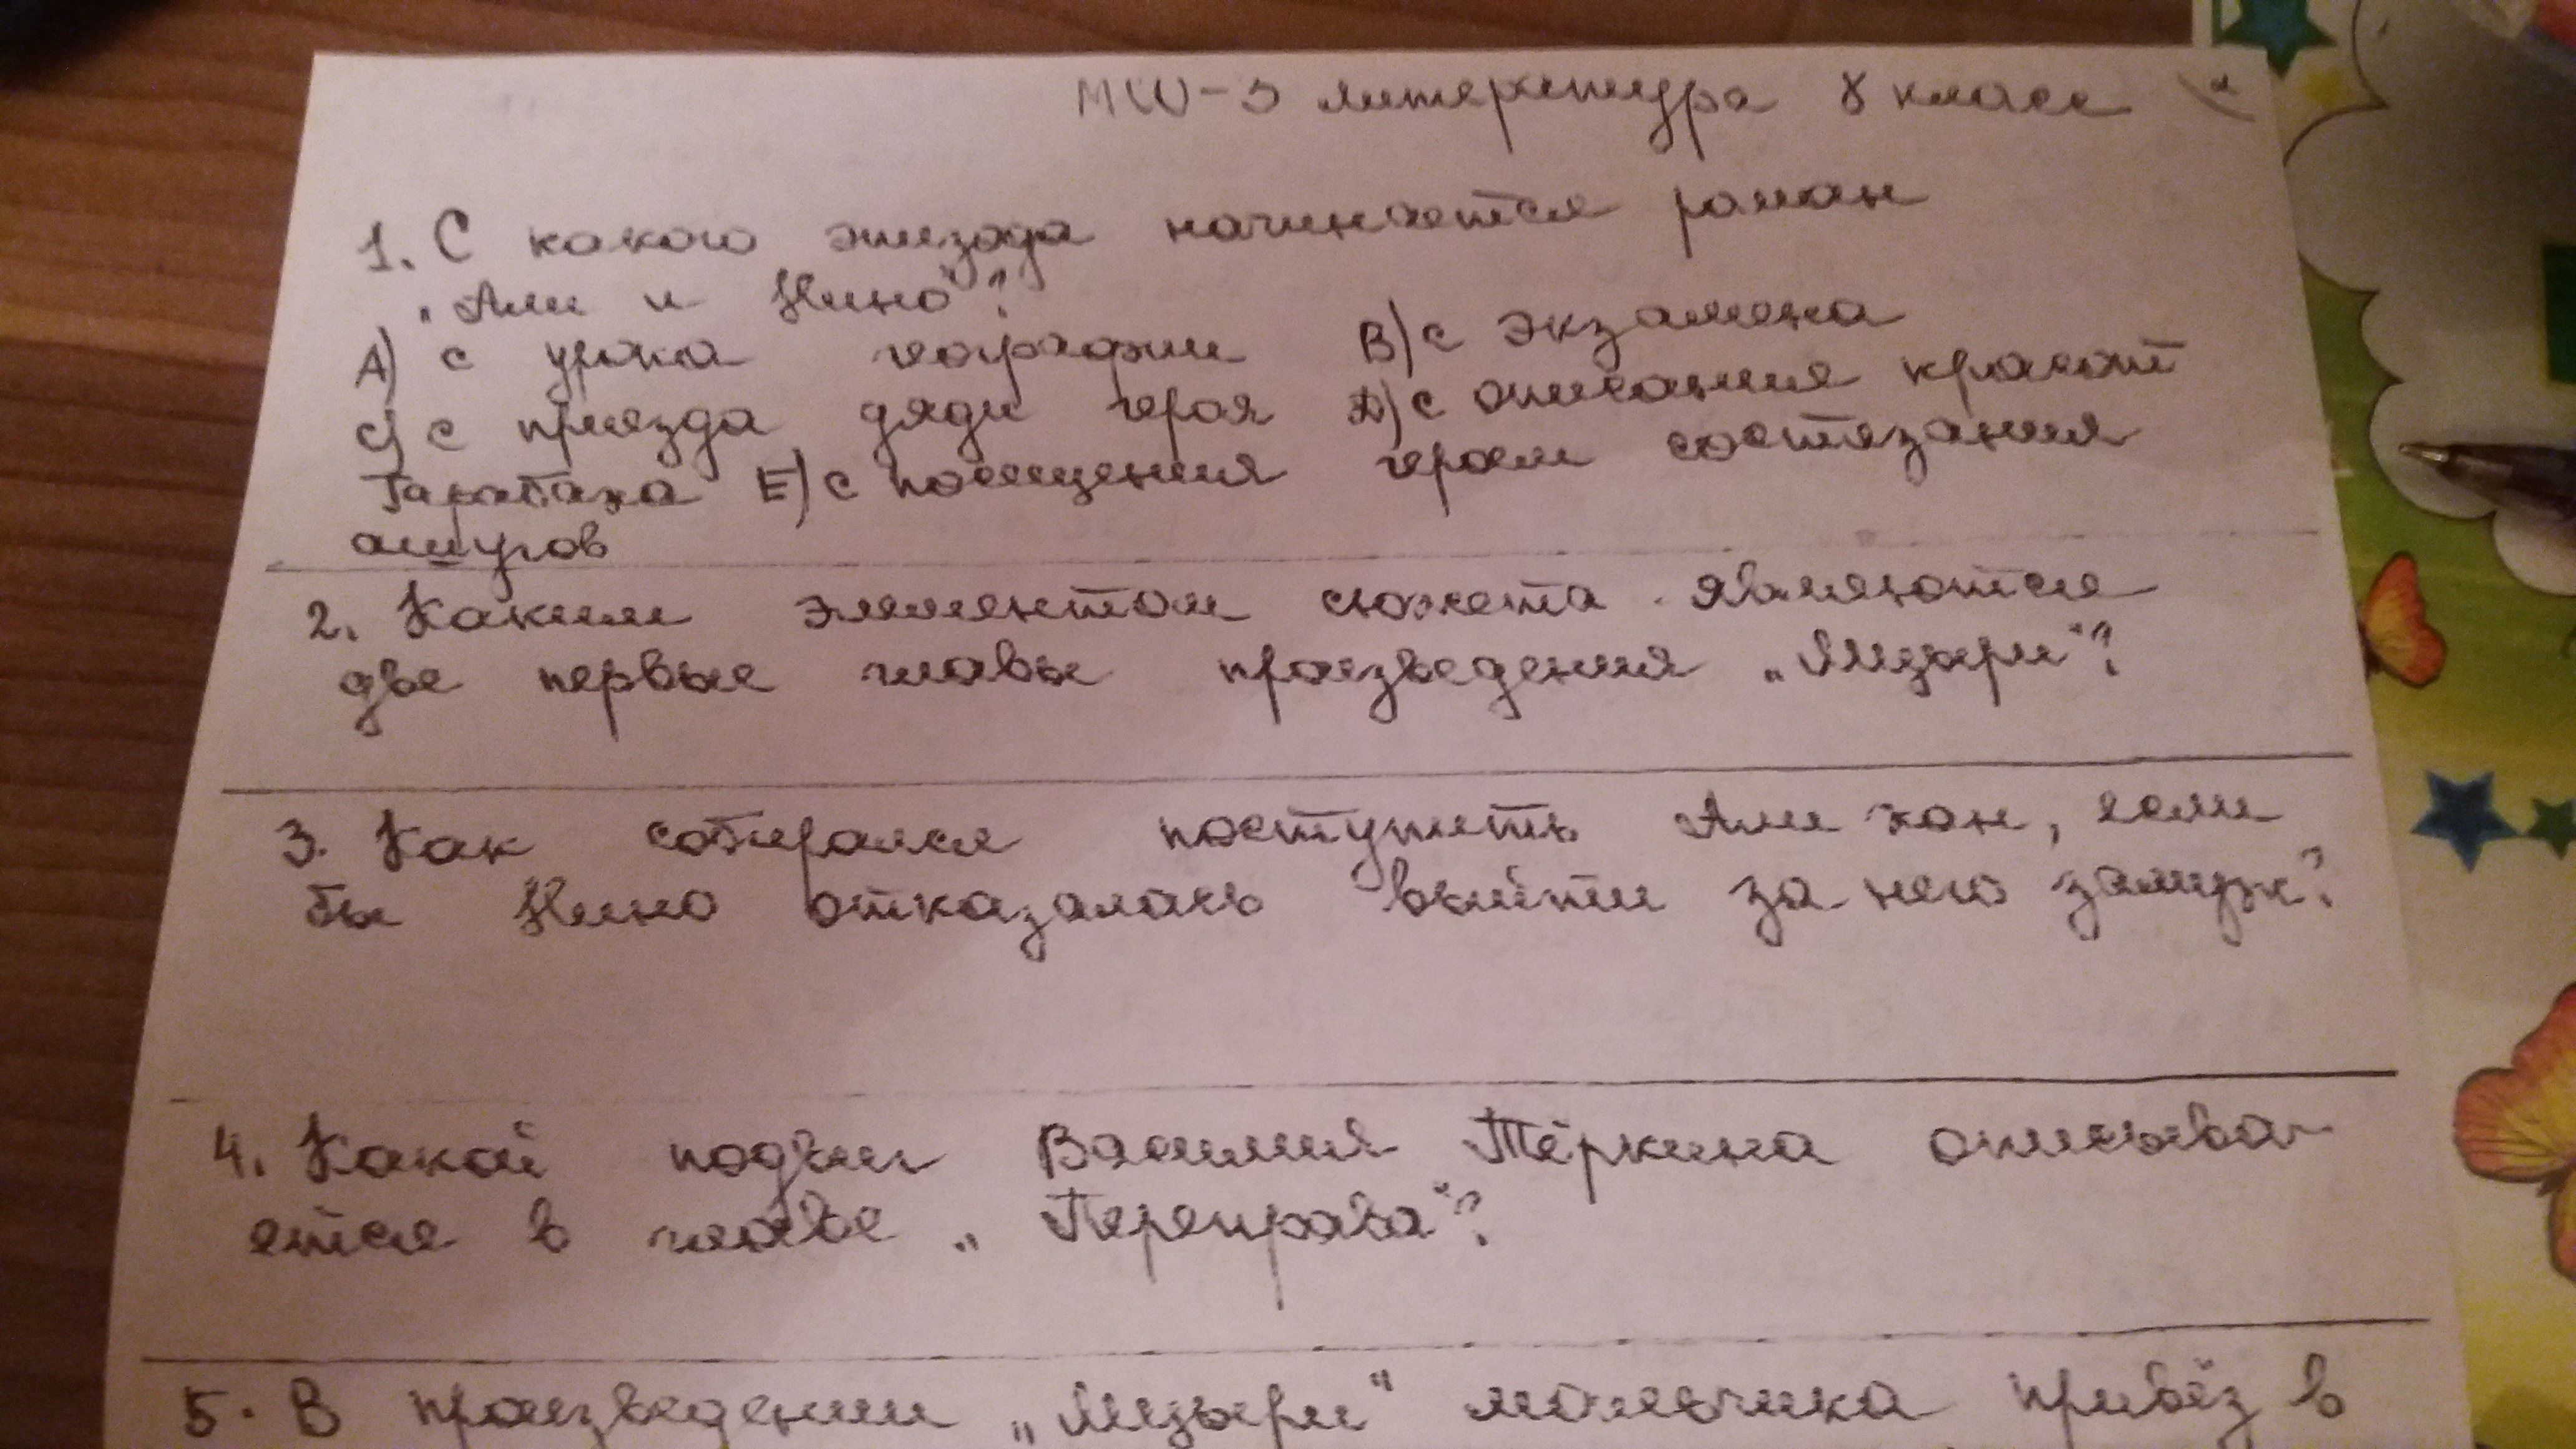 литература 8 класс
1. С какого эпизода начинается роман
„Али и Нино"?
A) с урока географии B) с экзамена
C) с приезда дяди героя D) с описания красот
Гарабаха E) с посещения героем состязания
ашугов
2. Каким элементом сюжета являются
две первые главы произведения „Мцыри"?
3. Как собирался поступить Али хан, если
бы Нино отказалась выйти за него замуж?
4. Какой подвиг Василия Тёркина описыва-
ется в главе „Переправа"?
5. В произведении „Мцыри" мальчика привёз в